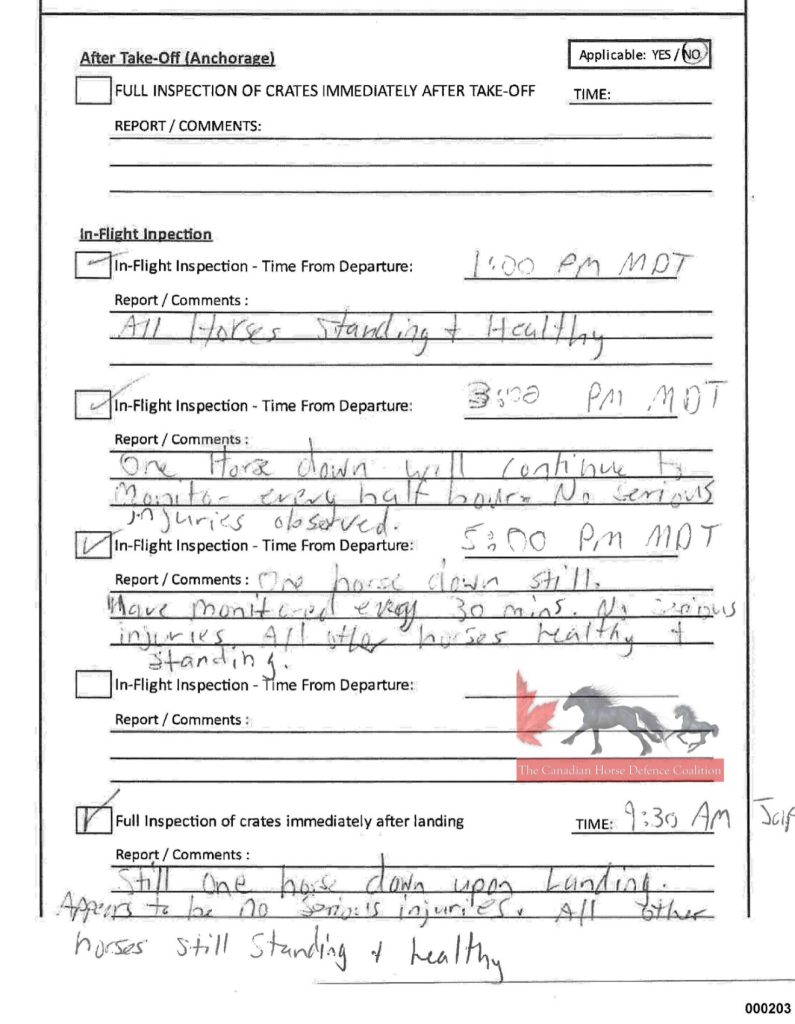 After Take-Off (Anchorage)
Applicable: YES / NO
FULL INSPECTION OF CRATES IMMEDIATELY AFTER TAKE-OFF TIME:
REPORT / COMMENTS:
In-Flight Inpection
In-Flight Inspection - Time From Departure: 1:00 PM MDT
Report / Comments :
All Horses Standing + Healthy
In-Flight Inspection - Time From Departure: 3:00 PM MDT
Report / Comments :
One Horse down will continue to
Monitor every half hour. No serious
injuries observed.
In-Flight Inspection - Time From Departure: 5:00 PM MDT
Report / Comments : One horse down still.
Have monitored every 30 mins. No serious
injuries. All other horses healthy +
standing.
In-Flight Inspection - Time From Departure:
Report / Comments :
The Canadian Horse Defence Coalition
Full Inspection of crates immediately after landing TIME: 9:30 AM
Report / Comments :
Still One horse down upon Landing.
Appears to be no serious injuries. All other
horses still standing + healthy
000203